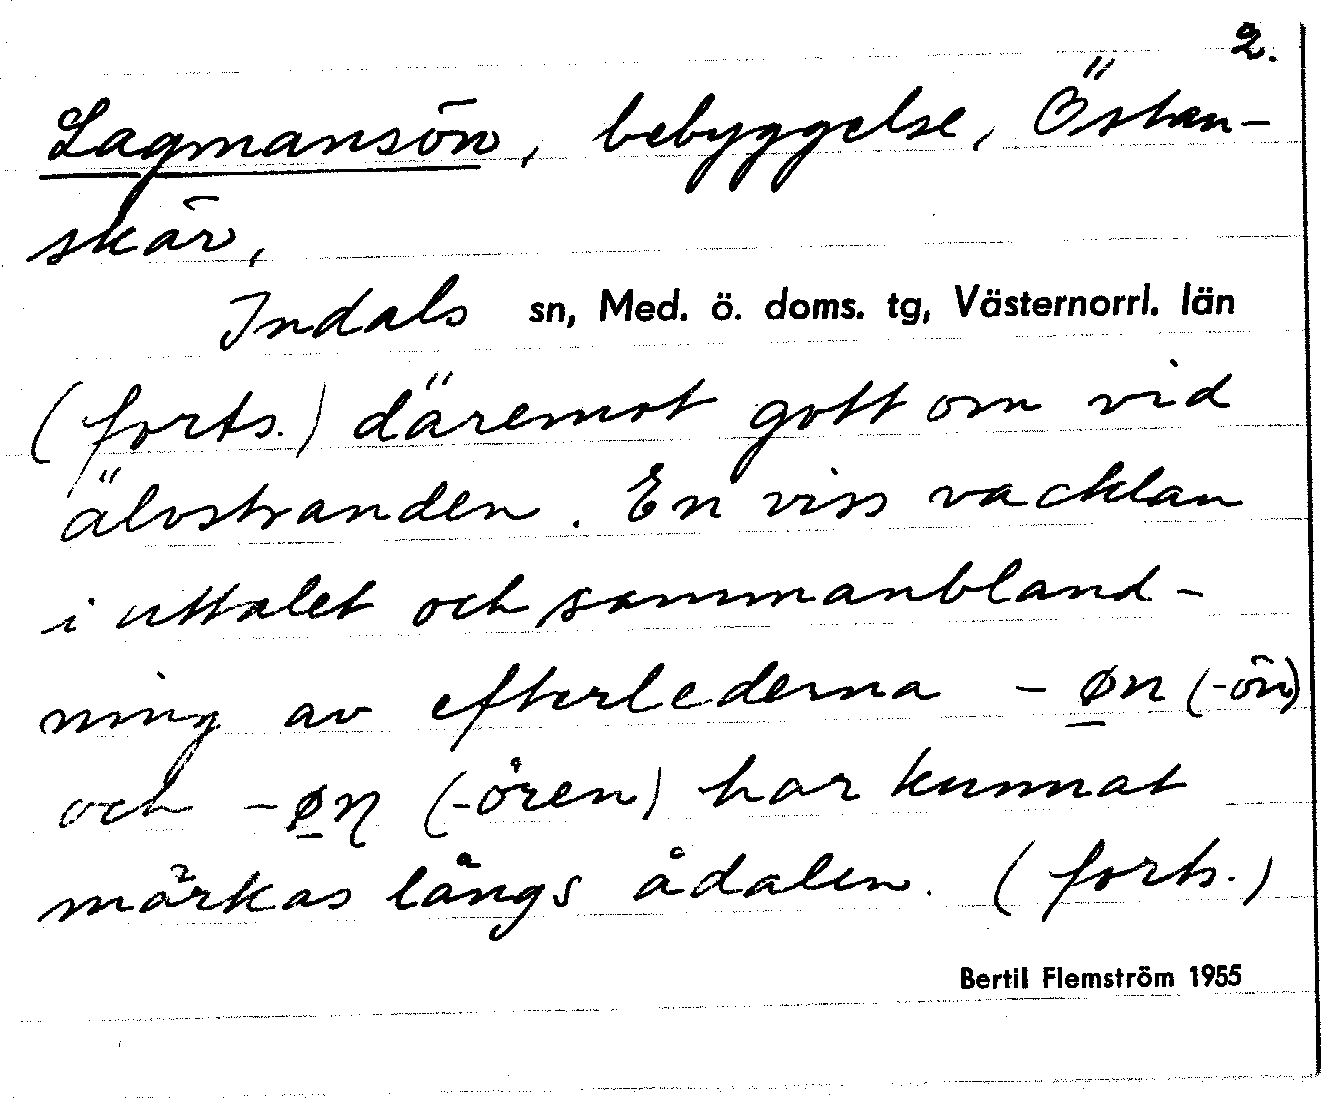 2.
Lagmansön, bebyggelse, Östan-
skär,
Indals sn, Med. ö. doms. tg, Västernorrl. län
(forts.) däremot gott om vid
älvstranden. En viss vacklan
i uttalet och sammanbland-
ning av efterlederna - ø̲n (-ön)
och -ø̲ɳ (-ören) har kunnat
märkas längs ådalen. (forts.)
Bertil Flemström 1955